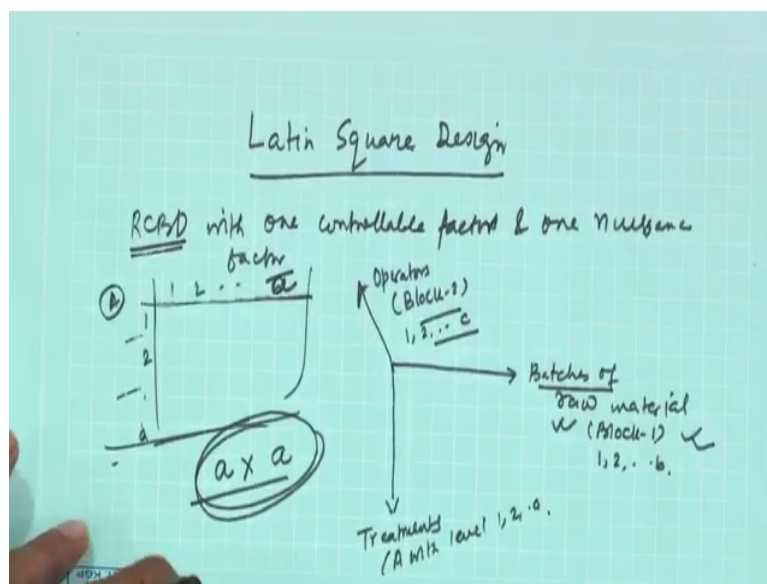 Latin Square Design
RCBD with one controllable factors & one nuisance
factor
A
1 2 . . a
1
2
.
a
a x a
Operators
(Block-2)
1, 2, .. c
Batches of
raw material
(Block-1)
1, 2, . . b.
Treatments
(A with level 1, 2, .a.
KGP